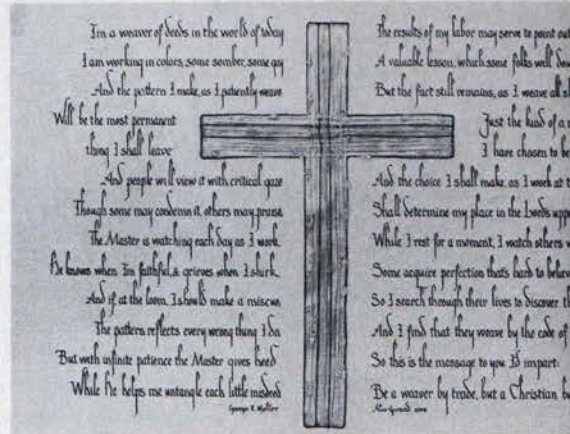 I'm a weaver of deeds in the world of today
I am working in colors, some somber, some gay
And the pattern I make, as I patiently weave
Will be the most permanent
thing I shall leave
And people will view it with critical gaze
Though some may condemn it, others may praise
The Master is watching each day as I work
He knows when I'm faithful, & grieves when I shirk
And if at the loom, I should make a miscue
The pattern reflects every wrong thing I do
But with infinite patience the Master gives heed
While He helps me untangle each little misdeed
George R.
The results of my labor may serve to point out
A valuable lesson, which some folks will
But the fact still remains, as I weave all
Just the kind of a
I have chosen to be
And the choice I shall make, as I work at
Shall determine my place in the Lord's
While I rest for a moment, I watch others
Some acquire perfection that's hard to
So I search through their lives to discover
And I find that they weave by the code of
So this is the message to you I'd impart:
Be a weaver by trade, but a Christian